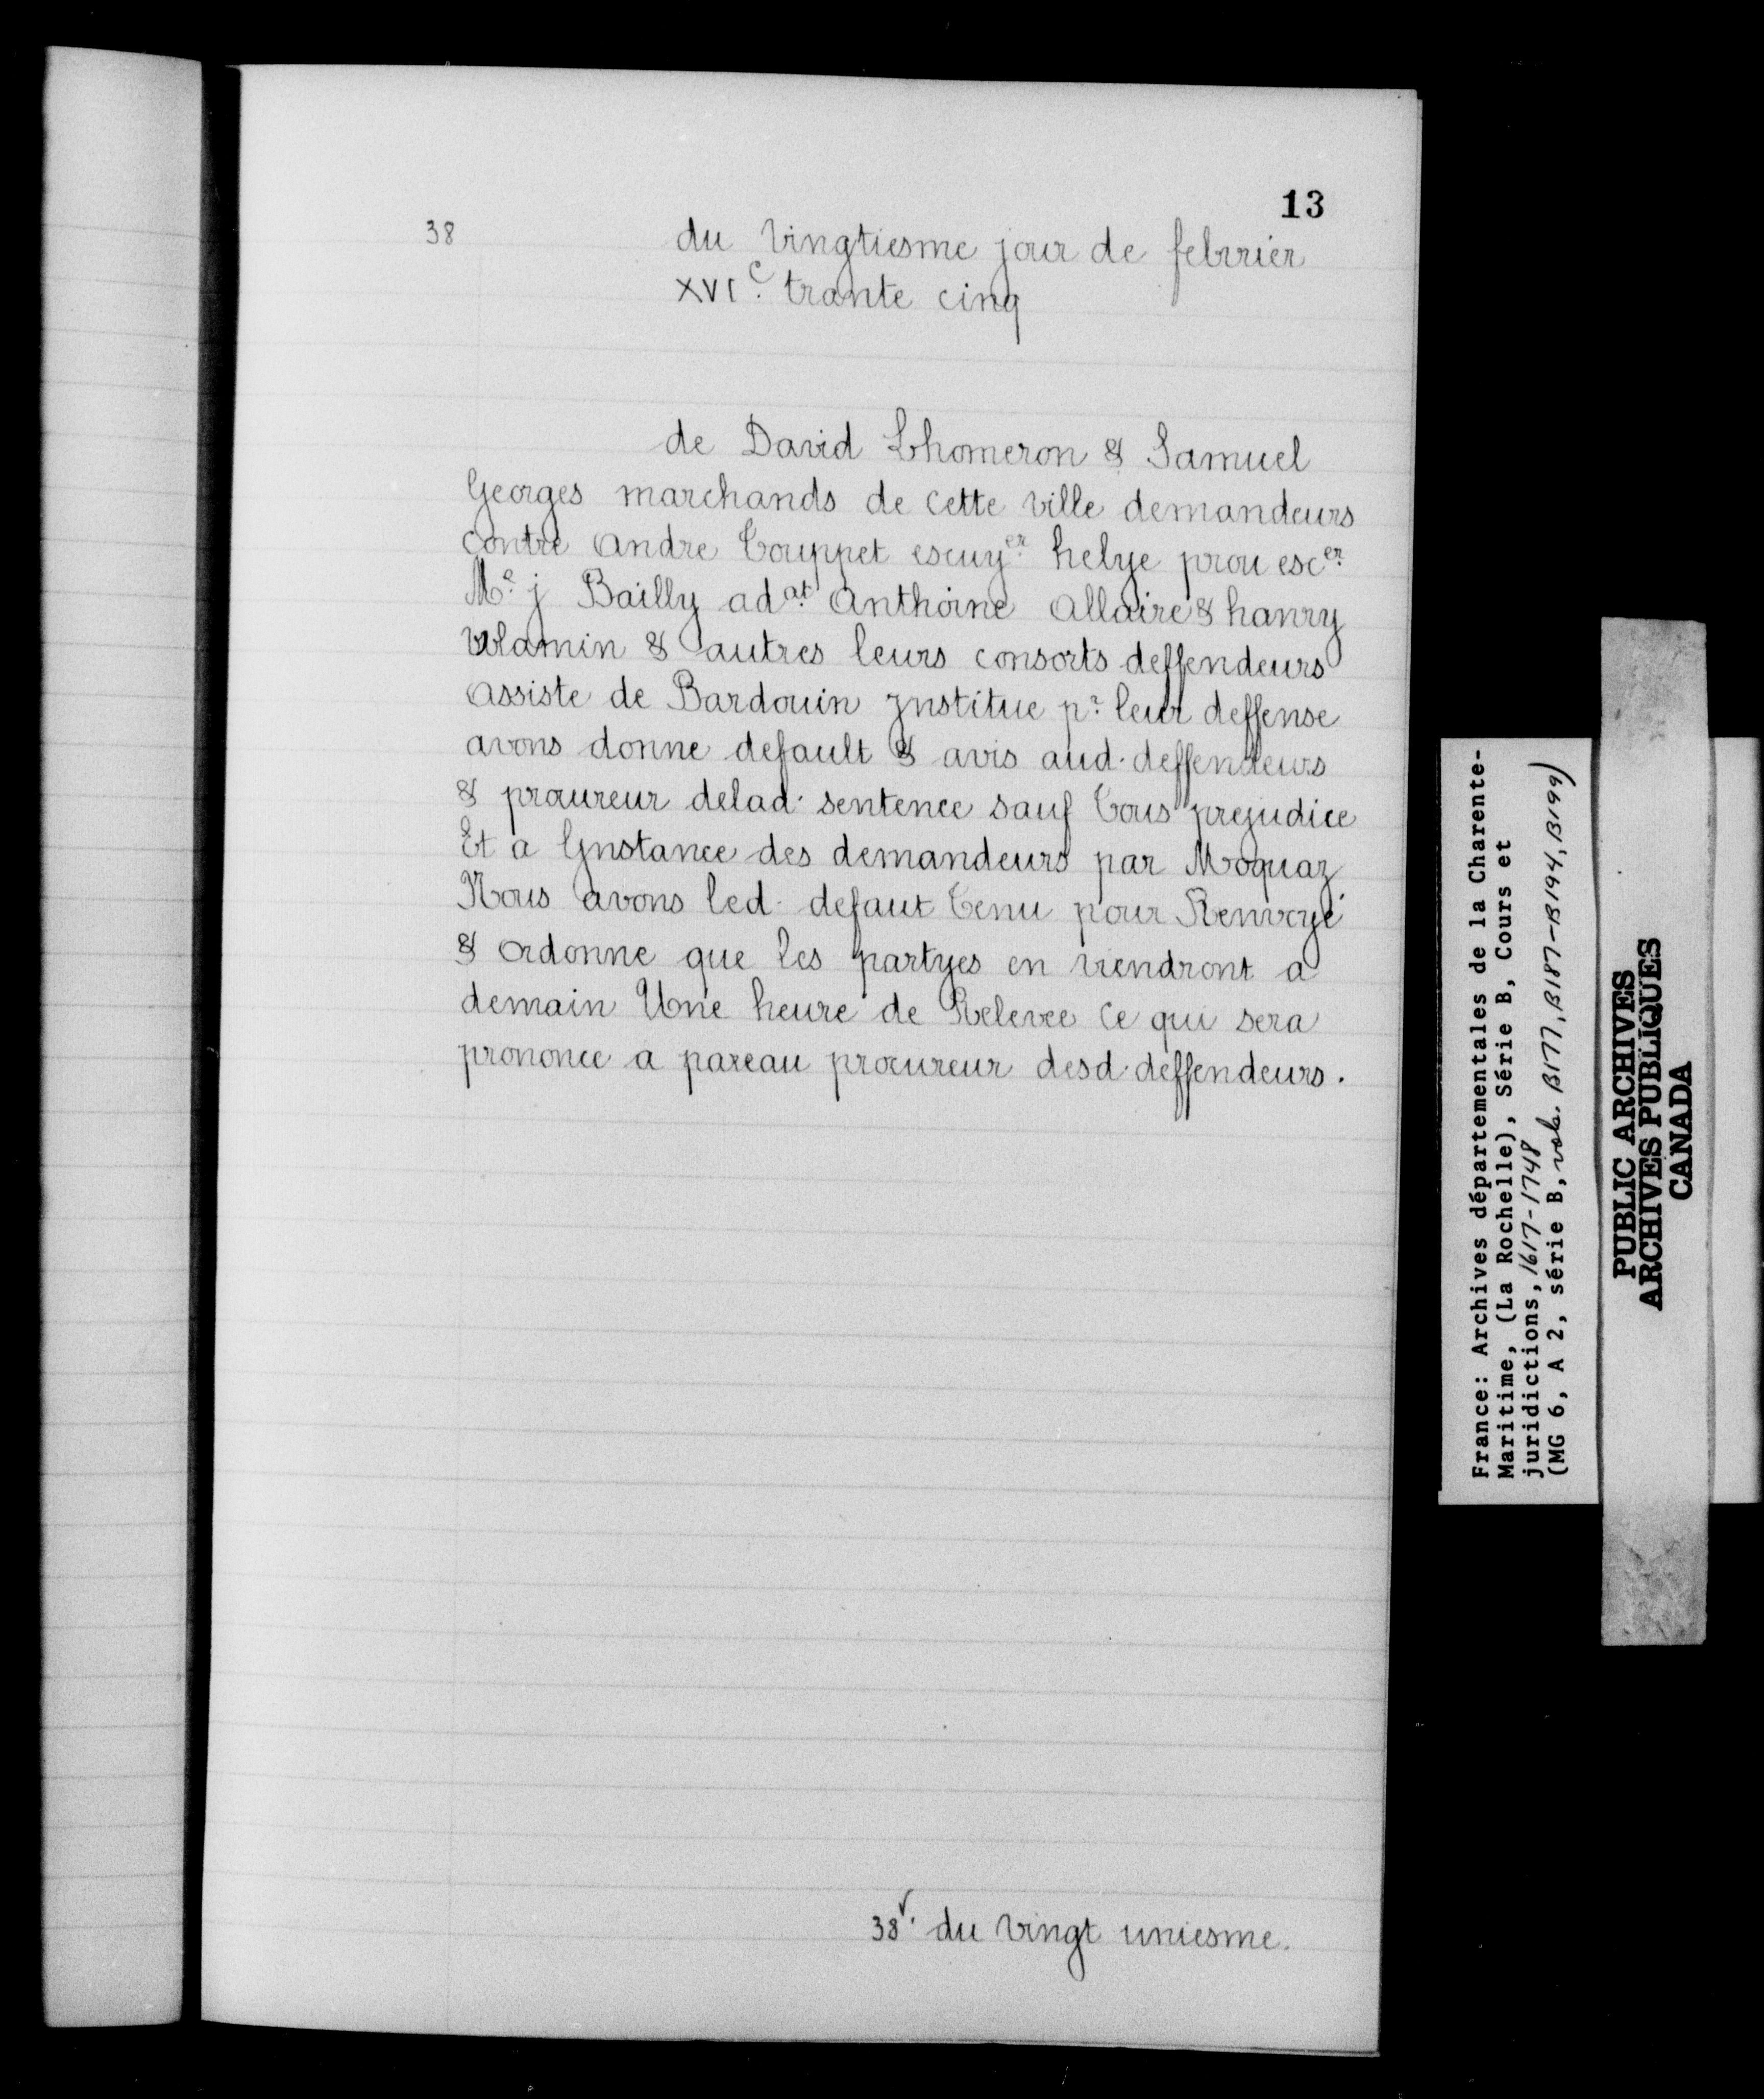 13
38
du vingtiesme jour de febvrier
XVI.c trante cinq
de David Lhomeron & Samuel
Georges marchands de cette ville demandeurs
contre andre Couppet escuy.er helye prou esc.er
M.e j Bailly ad.at Anthoine Allaire & hanry
& autres leurs consorts deffendeurs
assiste de Bardouin Jnstitue p.r leur deffense
avons donne default & avis aud. deffendeurs
& procureur delad. sentence sauf tous prejudice
Et a lJnstance des demandeurs par Moquaz
Nous avons led. defaut tenu pour Renvoyé
& ordonne que les partyes en viendront a
demain Une heure de Relevee ce qui sera
prononce a pareau procureur desd. deffendeurs.
38v. du vingt uniesme.
France: Archives départementales de la Charente-
Maritime, (La Rochelle), Série B, Cours et
juridictions, 1617-1748
(MG 6, A 2, série B, vols. B177, B187-B194, B199)
PUBLIC ARCHIVES
ARCHIVES PUBLIQUES
CANADA